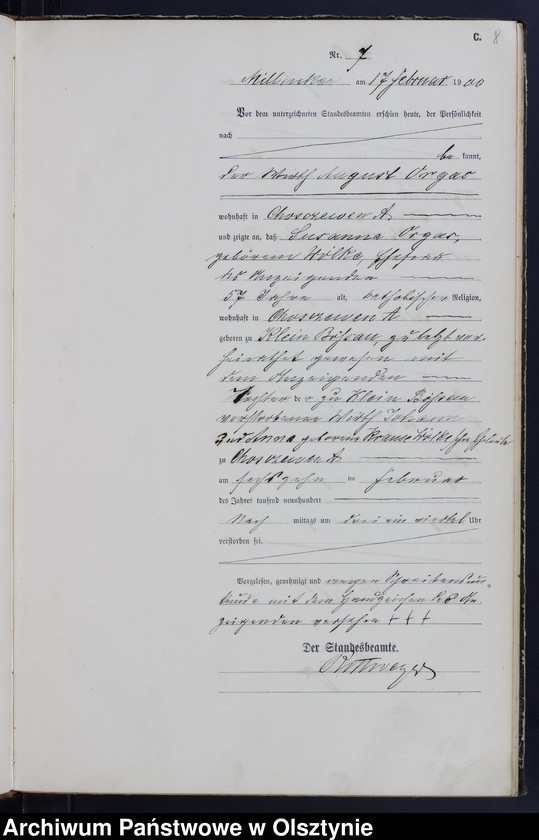 C. 8
Nr. 7
am 17 Februar 1900
Vor dem unterzeichneten Standesbeamten erschien heute, der Persönlichkeit
nach
be kannt,
der Wirth August Orgas
wohnhaft in Choszewen A.
und zeigte an, daß Susanna Orgas,
geborene Wölke, Ehefrau
des Anzeigenden
57 Jahre alt, katholischer Religion,
wohnhaft in Choszewen A
geboren zu Klein Bößau, zuletzt ver-
heirathet gewesen mit
dem Anzeigenden
Tochter der zu Klein Bößau
verstorbenen Wirth Johann
und Anna geborene Krause Wölke'schen Eheleute
zu Choszewen A
am sechszehn ten Februar
des Jahres tausend neunhundert
Nach mittags um drei ein viertel Uhr
verstorben sei.
Vorgelesen, genehmigt und wegen Schreibensun-
kunde mit dem Handzeichen des An-
zeigenden versehen + + +
Der Standesbeamte.
Archiwum Państwowe w Olsztynie